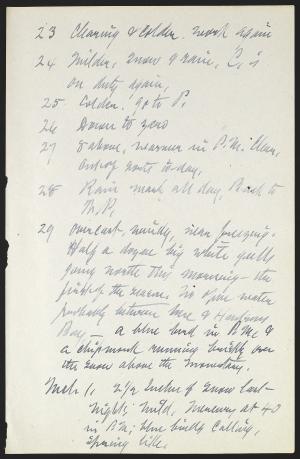 23 Clearing & colder. work again
24 Milder, snow & rain, C, is
on duty again,
25 Colder. go to P.
26 Down to zero
27 5 above, warmer in P.M. Clear,
out of to-day,
28 Rain most all day, Back to
R.P.
29 overcast, windy, near freezing.
Half a dozen big white gulls
going north this morning - the
first of the season. In open water
probably between here & Hudsons
Bay - a blue bird in P.M. &
a chipmonk running briskly over
the snow above the
Mch. 1, 2 1/2 inches of snow last
night; mild, mercury at 40
in P.M; birds calling,
Spring like.